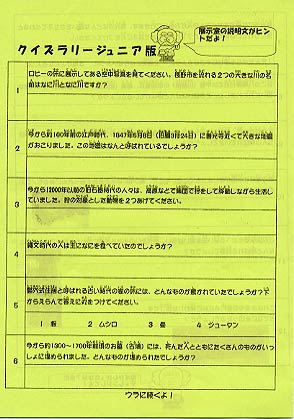 展示室の説明文がヒン
トだよ！
クイズラリージュニア版
1
ロビーの床に展示してある空中写真を見てください。長野市を流れる２つの大きな川の名
前はなに川となに川ですか？
2
今から約160年前の江戸時代、1847年5月8日（旧暦3月24日）に善光寺近くで大きな地震
がおこりました。この地震はなんと呼ばれているでしょうか？
3
今から12000年以前の旧石器時代の人々は、
集団で狩をして移動しながら生活し
ていました。狩の対象とした動物を２つあげてください。
4
縄文時代の人は主になにを食べていたのでしょうか？
5
竪穴式住居と呼ばれる古い時代の家の床には、どんなものが敷かれていたでしょうか？下
からえらんで答えに○をつけてください。
1 板 2 ムシロ 3 畳 4 ジュータン
6
今から約1300～1700年前頃のお墓（古墳）には、死んだ人とともにたくさんのものがいっ
しょに埋められました。どんなものが埋められたでしょうか？
ウラに続くよ！